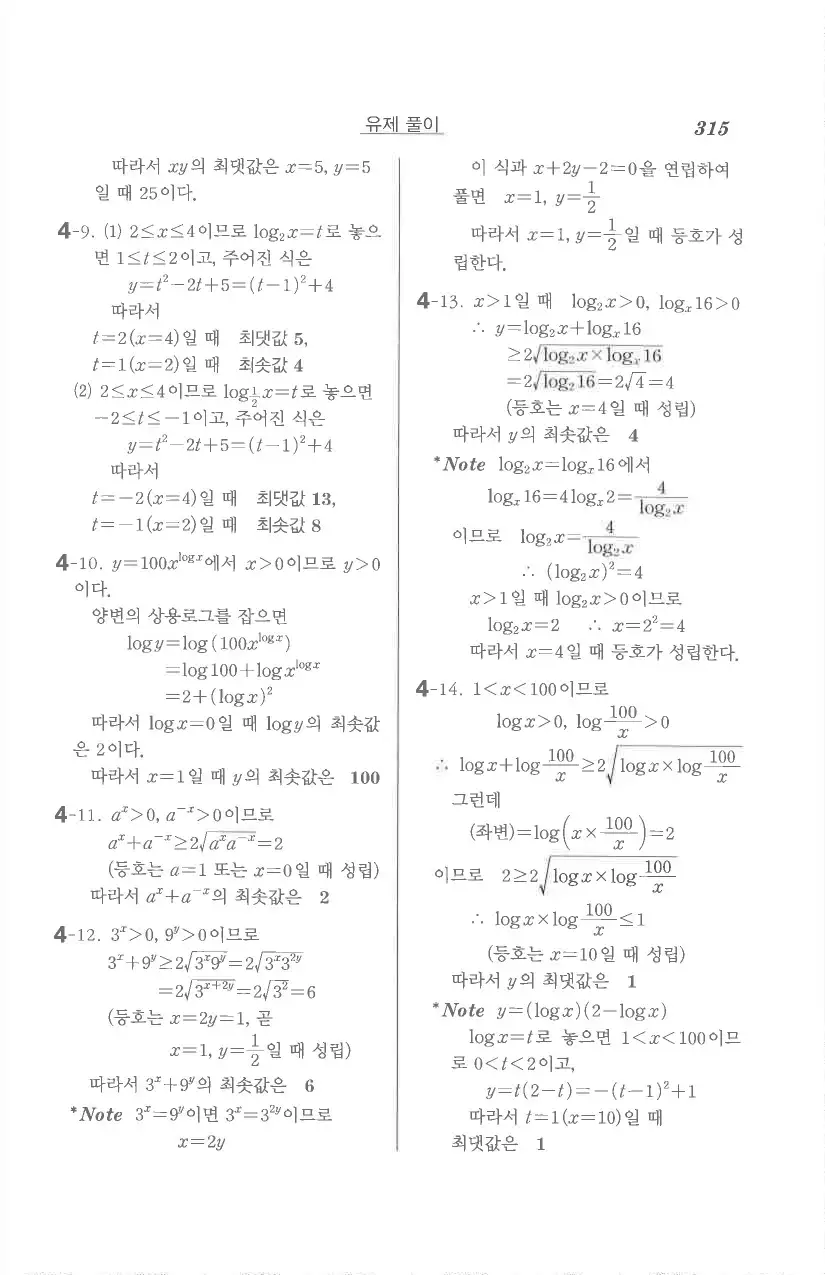 유제 풀이
315
따라서 xy의 최댓값은 x=5, y=5
일 때 25이다.
4-9. (1) 2≤x≤4이므로 log₂x=t로 놓으
면 1≤t≤2이고, 주어진 식은
y=t²-2t+5=(t-1)²+4
따라서
t=2(x=4)일 때 최댓값 5,
t=1(x=2)일 때 최솟값 4
(2) 2≤x≤4이므로 log_{1/2}x=t로 놓으면
-2≤t≤-1이고, 주어진 식은
y=t²-2t+5=(t-1)²+4
따라서
t=-2(x=4)일 때 최댓값 13,
t=-1(x=2)일 때 최솟값 8
4-10. y=100x^{logx}에서 x>0이므로 y>0
이다.
양변의 상용로그를 잡으면
logy=log(100x^{logx})
=log100+logx^{logx}
=2+(logx)²
따라서 logx=0일 때 logy의 최솟값
은 2이다.
따라서 x=1일 때 y의 최솟값은 100
4-11. a^x>0, a^{-x}>0이므로
a^x+a^{-x}≥2√(a^x a^{-x})=2
(등호는 a=1 또는 x=0일 때 성립)
따라서 a^x+a^{-x}의 최솟값은 2
4-12. 3^x>0, 9^y>0이므로
3^x+9^y≥2√(3^x9^y)=2√(3^x3^{2y})
=2√(3^{x+2y})=2√(3²)=6
(등호는 x=2y=1, 곧
x=1, y=1/2일 때 성립)
따라서 3^x+9^y의 최솟값은 6
*Note 3^x=9^y이면 3^x=3^{2y}이므로
x=2y
이 식과 x+2y-2=0을 연립하여
풀면 x=1, y=1/2
따라서 x=1, y=1/2일 때 등호가 성
립한다.
4-13. x>1일 때 log₂x>0, log_x16>0
∴ y=log₂x+log_x16
≥2√(log₂x×log_x16)
=2√(log₂16)=2√4=4
(등호는 x=4일 때 성립)
따라서 y의 최솟값은 4
*Note log₂x=log_x16에서
log_x16=4log_x2=4/log₂x
이므로 log₂x=4/log₂x
∴ (log₂x)²=4
x>1일 때 log₂x>0이므로
log₂x=2 ∴ x=2²=4
따라서 x=4일 때 등호가 성립한다.
4-14. 1<x<100이므로
logx>0, log 100/x>0
∴ logx+log 100/x≥2√(logx×log 100/x)
그런데
(좌변)=log(x×100/x)=2
이므로 2≥2√(logx×log 100/x)
∴ logx×log 100/x≤1
(등호는 x=10일 때 성립)
따라서 y의 최댓값은 1
*Note y=(logx)(2-logx)
logx=t로 놓으면 1<x<100이므
로 0<t<2이고,
y=t(2-t)=-(t-1)²+1
따라서 t=1(x=10)일 때
최댓값은 1